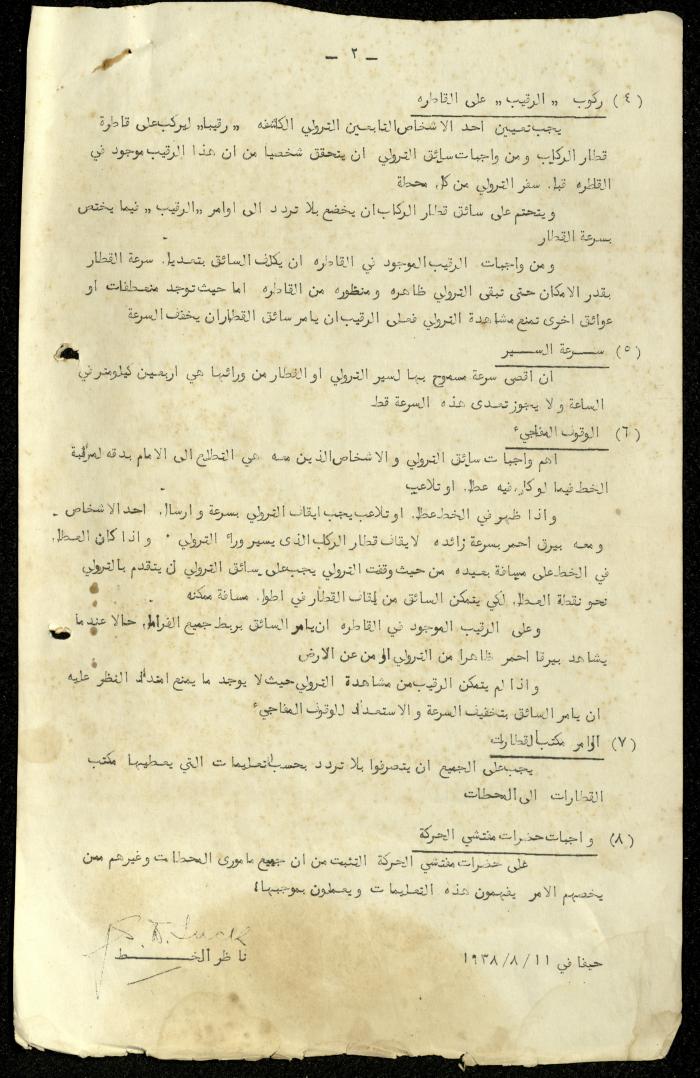 ـ ٢ ـ
(٤) ركوب „ الرقيب „ على القاطره
يجب تعيين احد الاشخاص التابعين الترولي الكاشفه „ رقيبا„ ليركب على قاطرة
قطار الركاب ومن واجبات سائق الترولي ان يتحقق شخصيا من ان هذا الرقيب موجود في
القاطره قبل سفر الترولي من كل محطة
ويتحتم على سائق قطار الركاب ان يخضع بلا تردد الى اوامر „الرقيب „ فيما يختص
بسرعة القطار
ومن واجبات الرقيب الموجود في القاطره ان يكلف السائق بتعديل سرعة القطار
بقدر الامكان حتى تبقى الترولي ظاهره ومنظوره من القاطره اما حيث توجد منعطفات او
عوائق اخرى تمنع مشاهدة الترولي فعلى الرقيب ان يامر سائق القطار ان يخفف السرعة
(٥) سـرعة السـير
ان اقصى سرعة مسموح بها لسير الترولي او القطار من ورائها هي اربعين كيلومتر في
الساعة ولا يجوز تعدى هذه السرعة قط
(٦) الوقوف المفاجيء
اهم واجبات سائق الترولي والاشخاص الذين معه هي التطلع الى الامام بدقه لمراقبة
الخط فيما لو كان فيه عطل او تلاعب
واذا ظهر في الخط عطل او تلاعب يجب ايقاف الترولي بسرعة وارسال احد الاشخاص
ومعه بيرق احمر بسرعة زائده لايقاف قطار الركاب الذى يسير وراء الترولي ٠ واذا كان العطل
في الخط على مسافة بعيده من حيث وقفت الترولي يجب على سائق الترولي ان يتقدم بالترولي
نحو نقطة العطل لكي يتمكن السائق من ايقاف القطار في اطول مسافة ممكنه
وعلى الرقيب الموجود في القاطره ان يامر السائق بربط جميع الفرامل حالا عندما
يشاهد بيرقا احمر ظاهرا من الترولي او من عن الارض
واذا لم يتمكن الرقيب من مشاهدة الترولي حيث لا يوجد ما يمنع امتداد النظر عليه
ان يامر السائق بتخفيف السرعة والاستعداد للوقوف المفاجيء
(٧) اوامر مكتب القطارات
يجب على الجميع ان يتصرفوا بلا تردد بحسب التعليمات التي يعطيها مكتب
القطارات الى المحطات
(٨) واجبات حضرات مفتشي الحركة
على حضرات مفتشي الحركة التثبت من ان جميع مامورى المحطات وغيرهم ممن
يخصهم الامر يفهمون هذه التعليمات ويعملون بموجبها
حيفا في ١٩٣٨/٨/١١
ناظر الخــط